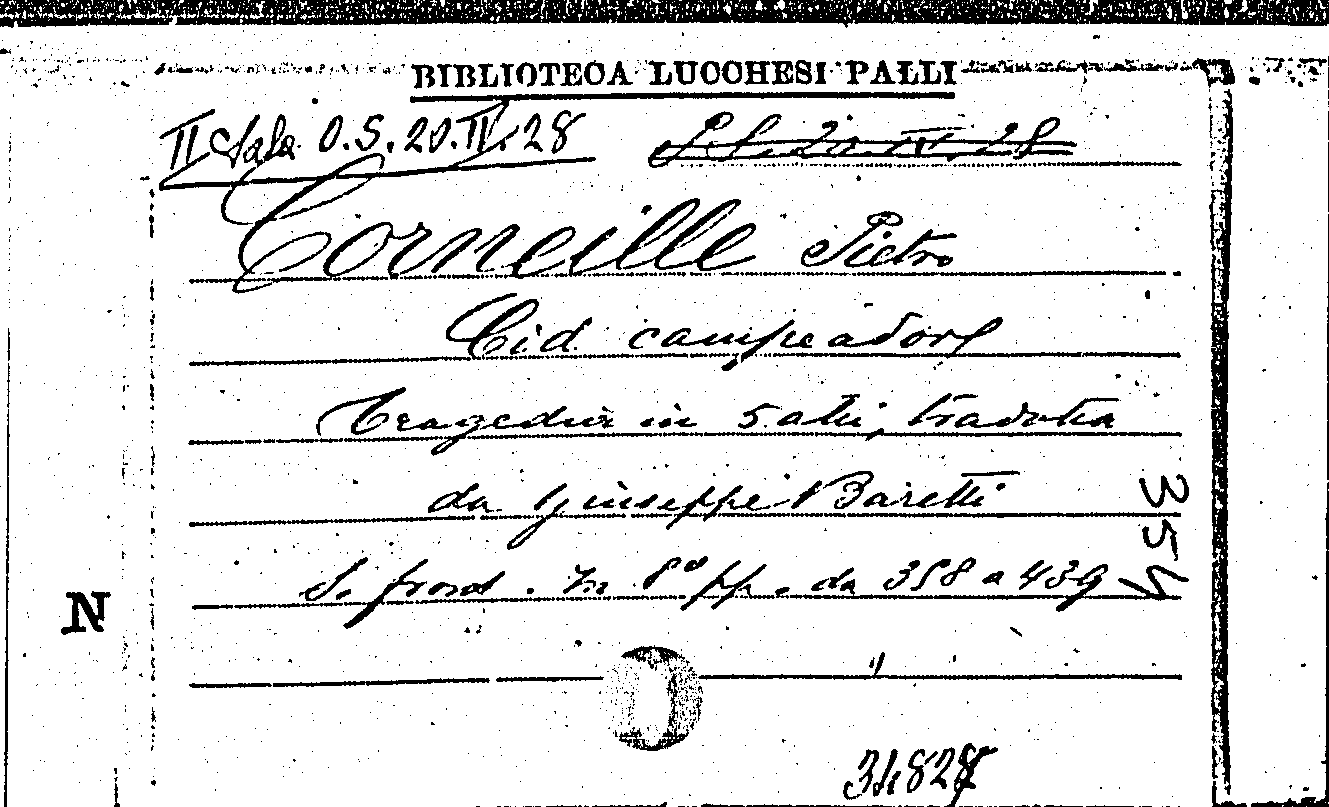 BIBLIOTECA LUCCHESI PALLI
II Sala O.S.20.II.28
Corneille Pietro
Cid campeadore
Tragedia in 5 atti, tradotta
da Giuseppe Baretti
S. front. In 8° pp. da 358 a 439
354
N